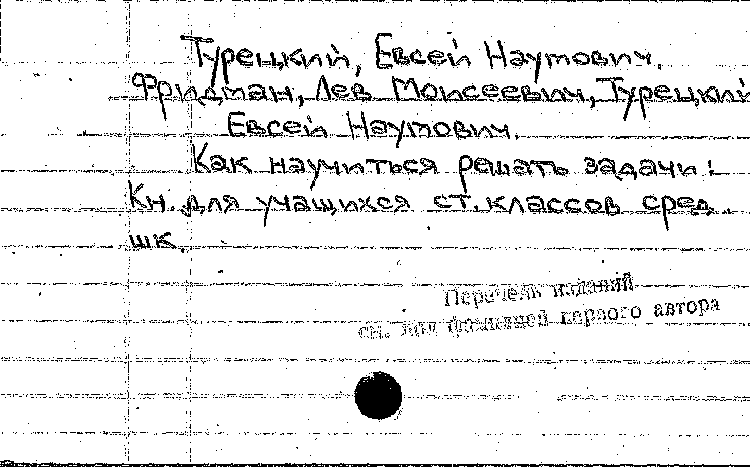 Турецкий, Евсей Наумович.
Фридман, Лев Моисеевич, Турецкий
Евсей Наумович.
Как научиться решать задачи:
Кн. для учащихся ст. классов сред.
шк.
Перечень изданий
см. под фамилией первого автора